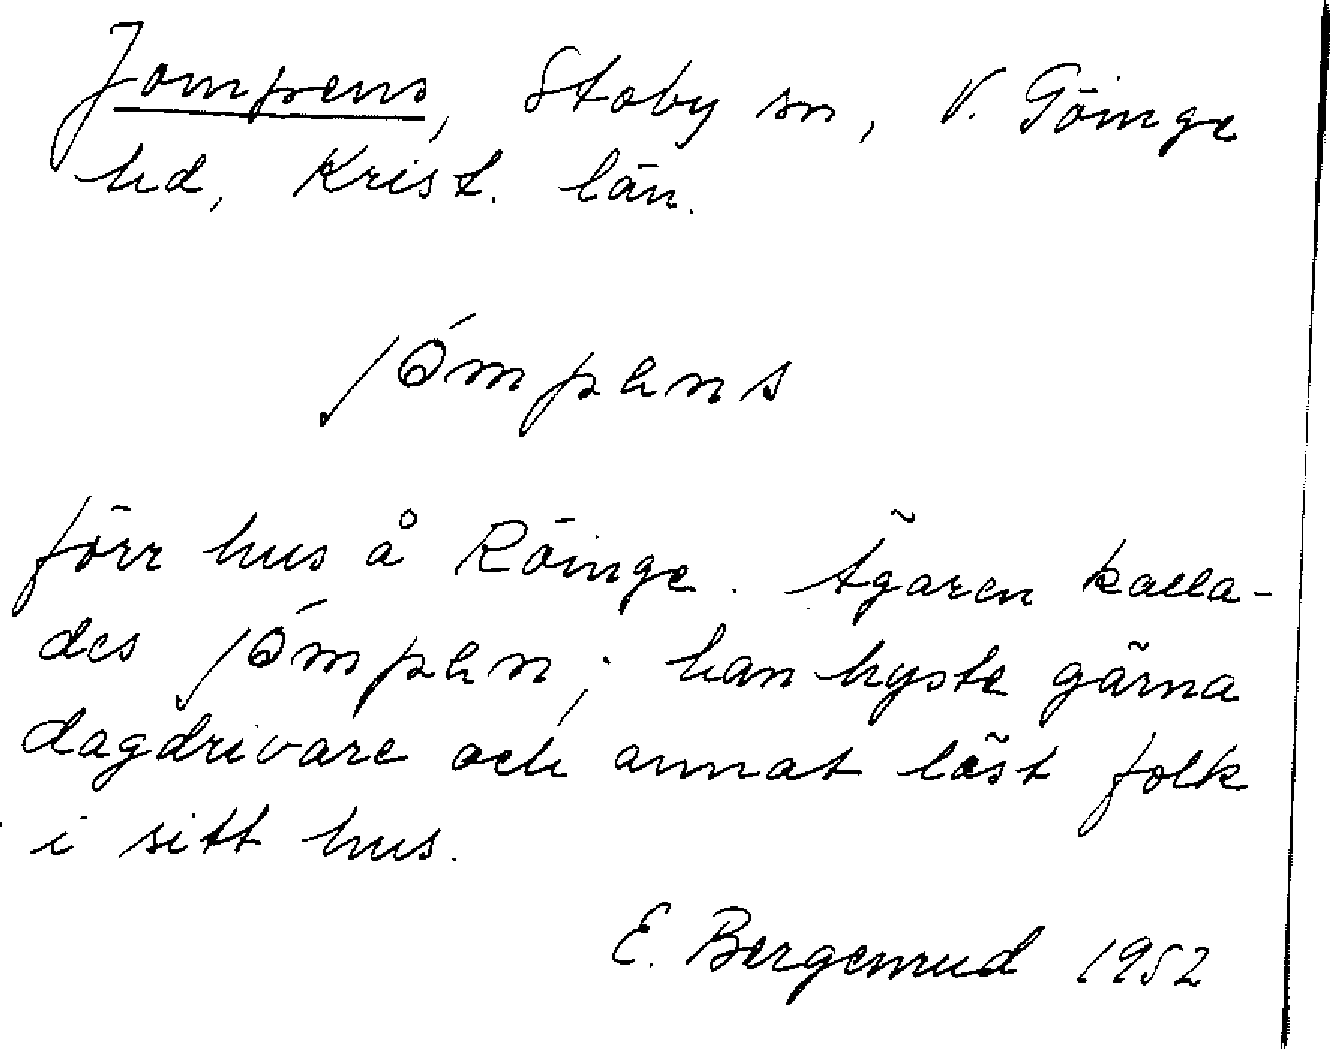 Jompens, Stoby sn, V. Göinge
hd, Krist. län.
jómpens
förr hus å Röinge. Ägaren kalla-
des jómpen; han hyste gärna
dagdrivare och annat löst folk
i sitt hus.
E. Bergenrud 1952